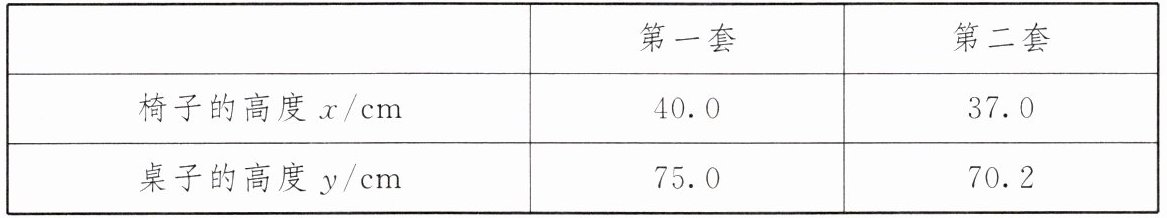 第一套 第二套
椅子的高度 x/cm 40.0 37.0
桌子的高度 y/cm 75.0 70.2